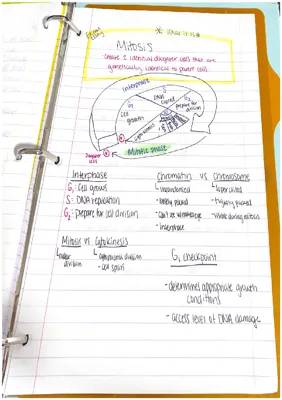 Mitosis
create 2 identical daughter cells that are
genetically identical to parent cell
Interphase
S
DNA
copied
G1
cell
growth
G2
prepare for
division
cytokinesis
Mitotic phase
Interphase
G1: Cell grows
S: DNA replication
G2: prepare for cell division
Chromatin vs Chromosome
- uncondensed
- supercoiled
- loosely packed
- tightly packed
- visible during mitosis
- interphase
Mitosis vs Cytokinesis
nuclear
division
cytoplasmic division
- cell splits
G1 checkpoint
- determines appropriate growth
conditions
- access level of DNA damage